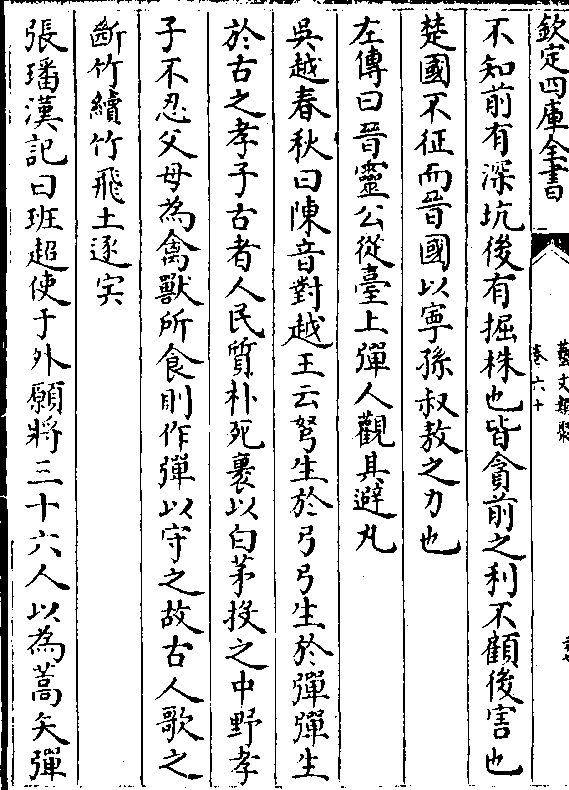 欽定四庫全書
藝文類聚
卷六十
不知前有深坑後有掘株也皆貪前之利不顧後害也
楚國不征而晉國以寧孫叔敖之力也
左傳曰晉靈公從臺上彈人觀其避丸
吳越春秋曰陳音對越王云弩生於弓弓生於彈彈生
於古之孝子古者人民質朴死裹以白茅投之中野孝
子不忍父母為禽獸所食則作彈以守之故古人歌之
斷竹續竹飛土逐宍
張璠漢記曰班超使于外願將三十六人以為蒿矢彈